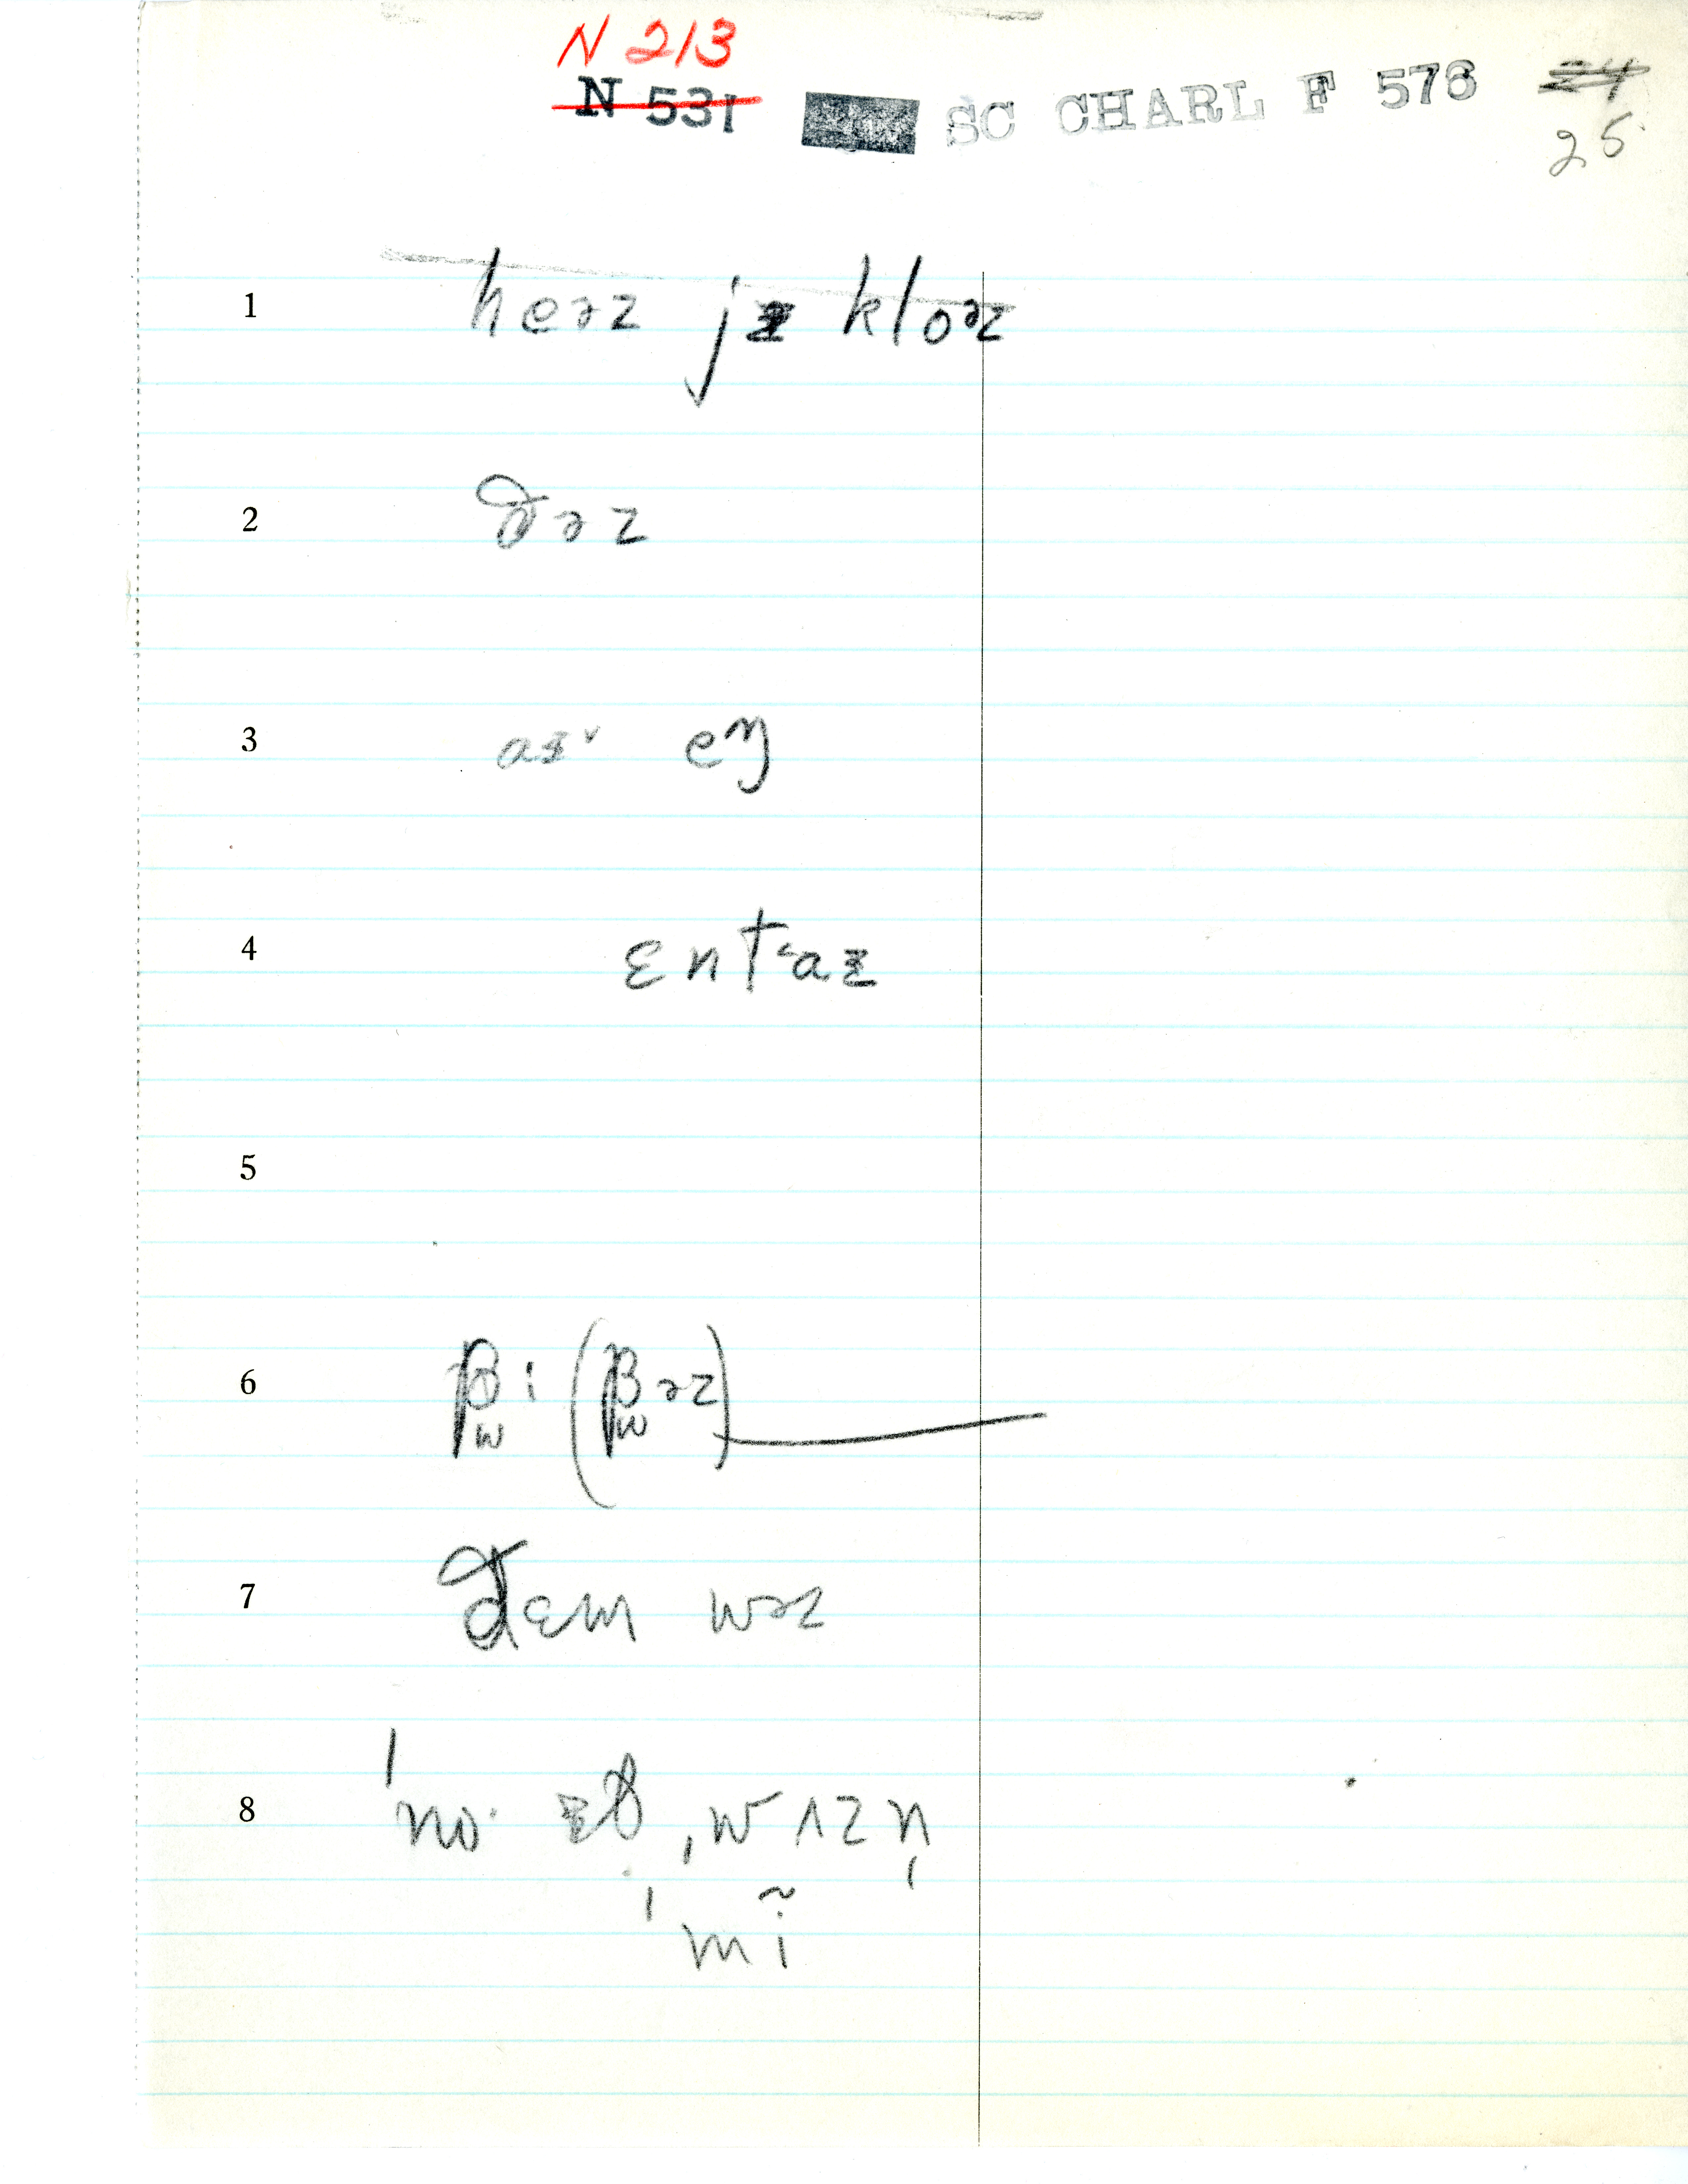 N 213
N 531 SC CHARL F 576 24
25
1 heəz jɨ kloəz
2 ðəz
3 aɨ eŋ
4 ɛntʿaɨ
5
6 βi (βəz)
w w
7 dɛm wəz
8 ˈno ɨð ˌwʌzn̩
ˈmĩ